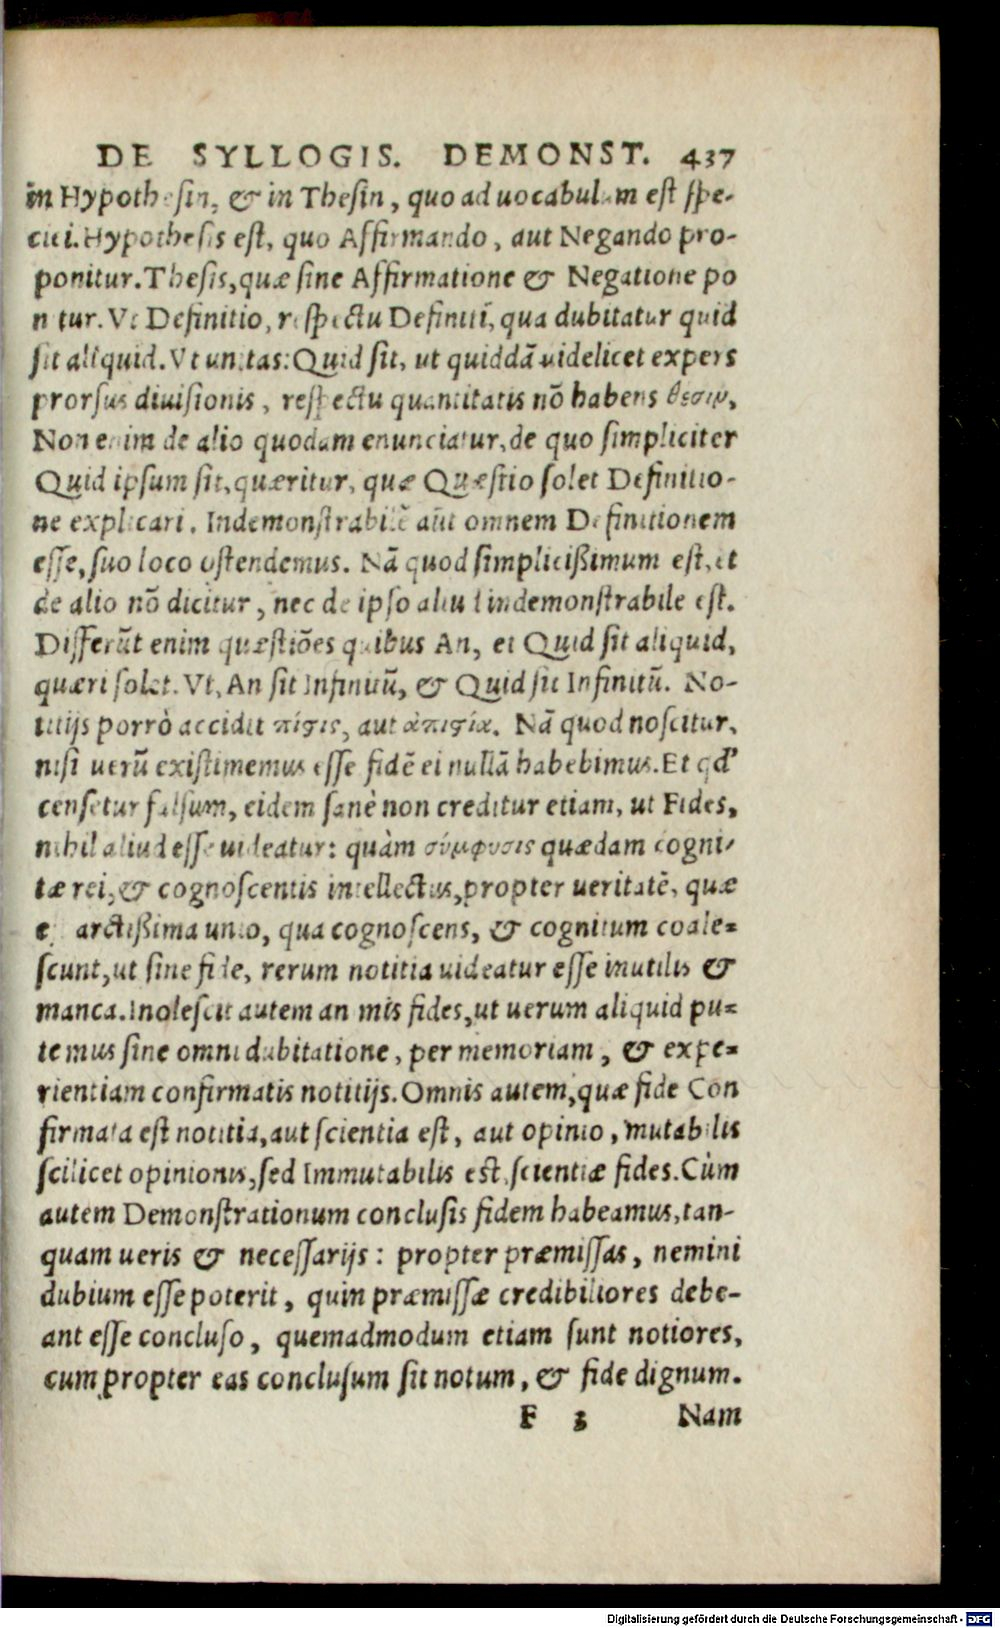 DE SYLLOGIS. DEMONST. 437
in Hypothesin, & in Thesin, quo ad uocabulum est spe-
cui. Hypothesis est, quo Affirmando, aut Negando pro-
ponitur. Thesis, quæ sine Affirmatione & Negatione po
nitur. Vt Definitio, respectu Definiti, qua dubitatur quid
sit aliquid. Vt unitas: Quid sit, ut quiddã uidelicet expers
prorsus diuisionis, respectu quantitatis nõ habens θεσιν.
Non enim de alio quodam enunciatur, de quo simpliciter
Quid ipsum sit, quæritur, quæ Quæstio solet Definitio-
ne explicari. Indemonstrabilẽ aũt omnem Definitionem
esse, suo loco ostendemus. Nã quod simplicißimum est, et
de alio nõ dicitur, nec de ipso aliud indemonstrabile est.
Differũt enim quæstiões quibus An, et Quid sit aliquid,
quæri solet. Vt, An sit Infinitũ, & Quid sit Infinitũ. No-
titijs porrò accidit πίϛις, aut ἀπιϛία. Nã quod noscitur,
nisi uerũ existimemus esse fidẽ ei nullã habebimus. Et qd'
censetur falsum, eidem sanè non creditur etiam, ut Fides,
nihil aliud esse uideatur: quàm σύμφυσις quædam cogni-
tæ rei, & cognoscentis intellectus, propter veritatẽ, quæ
arctißima unio, qua cognoscens, & cognitum coale=
scunt, ut sine fide, rerum notitia uideatur esse inutilis &
manca. Inolescit autem animis fides, ut uerum aliquid pu=
temus sine omni dubitatione, per memoriam, & expe=
rientiam confirmatis notitijs. Omnis autem, quæ fide Con
firmata est notitia, aut scientia est, aut opinio, mutabilis
scilicet opinionis, sed Immutabilis est scientiæ fides. Cùm
autem Demonstrationum conclusis fidem habeamus, tan-
quam ueris & necessarijs: propter præmissas, nemini
dubium esse poterit, quin præmissæ credibiliores debe-
ant esse concluso, quemadmodum etiam sunt notiores,
cum propter eas conclusum sit notum, & fide dignum.
F 3 Nam
Digitalisierung gefördert durch die Deutsche Forschungsgemeinschaft - DFG